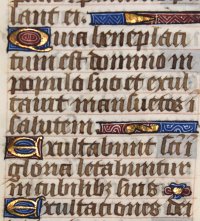 lant ei.
Quia beneplaci
tum est domino in
populo suo et exul
tavit mansuetos i
salutem.
Exultabunt sci
gloria letabuntur
in cubilib; suis
Exultationes